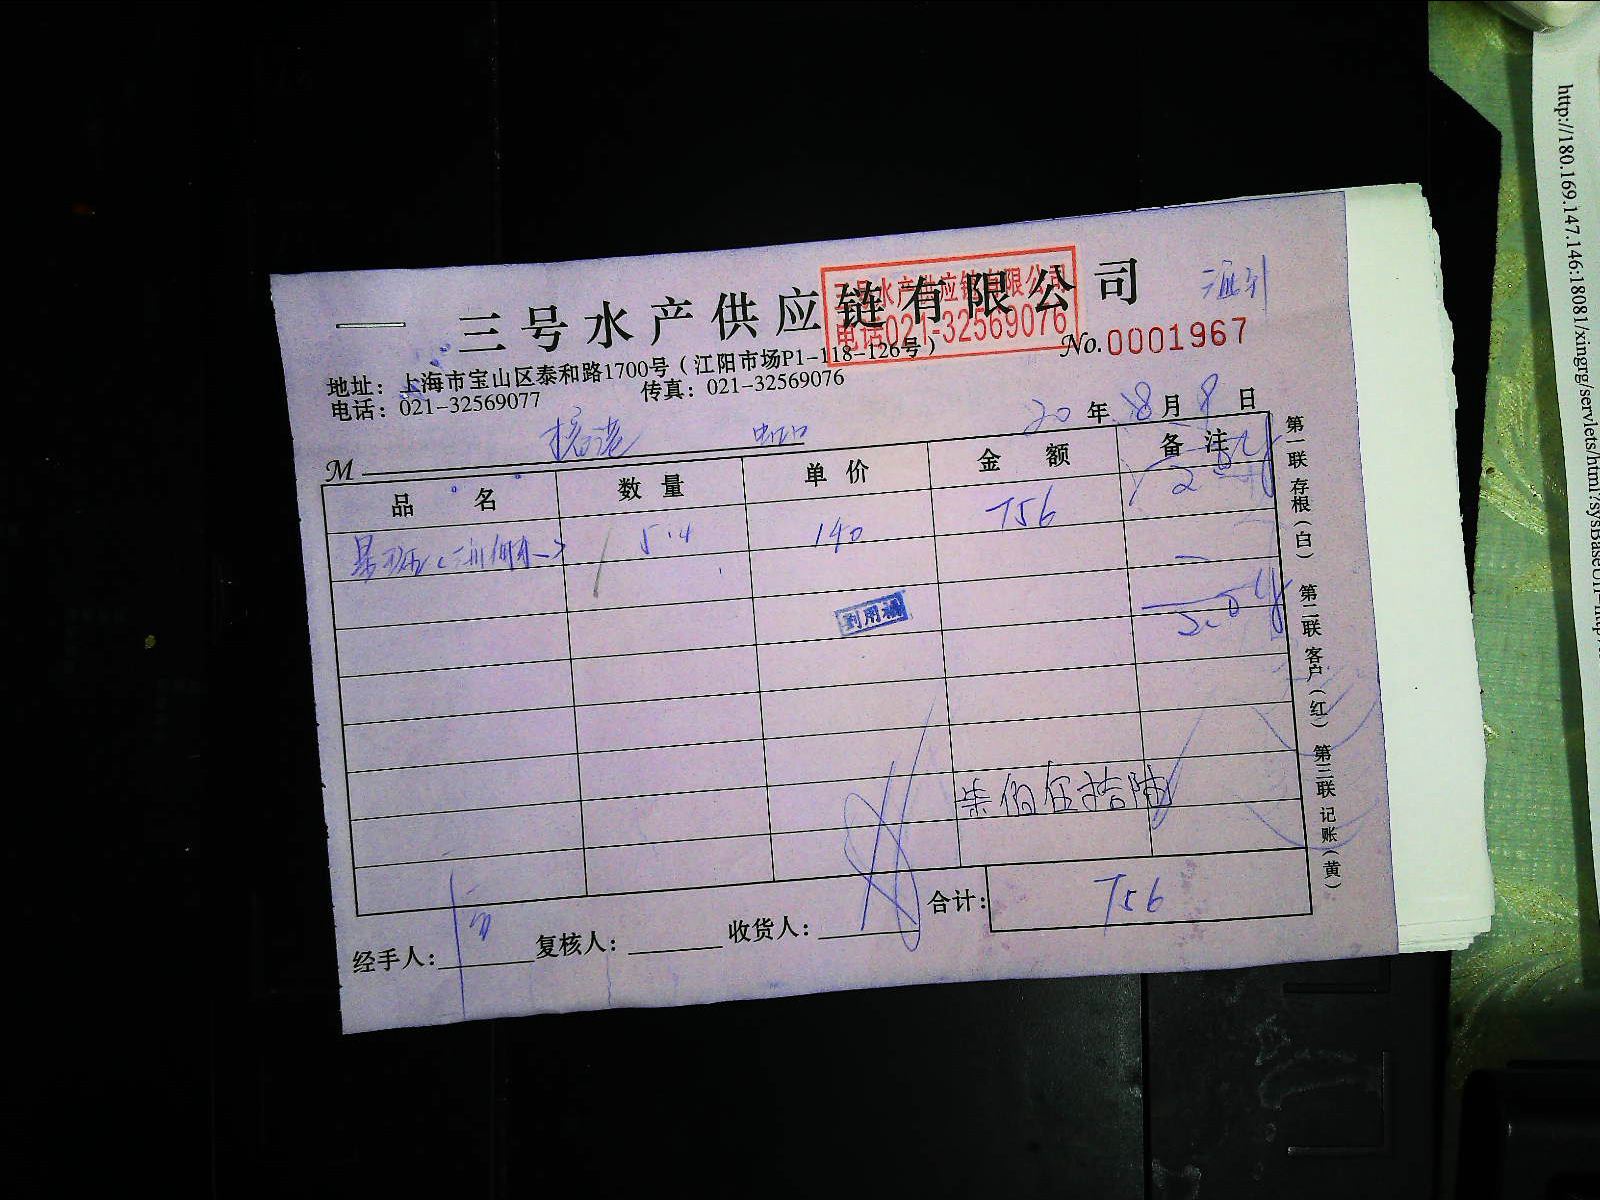 三号水产供应链有限公司
三号水产供应链有限公司
电话021-32569076
No.0001967
地址：上海市宝山区泰和路1700号（江阳市场P1-118-126号）
电话：021-32569077 传真：021-32569076
20 年 8 月 9 日
M 虹口
品名 数量 单价 金额 备注
5.4 140 756
到用袖
柒佰伍拾陆
合计： 756
经手人： 复核人： 收货人：
第一联 存根（白） 第二联 客户（红） 第三联 记账（黄）
http://180.169.147.146:18081/xingrg/servlets/html?sysBaseUrl=http:/